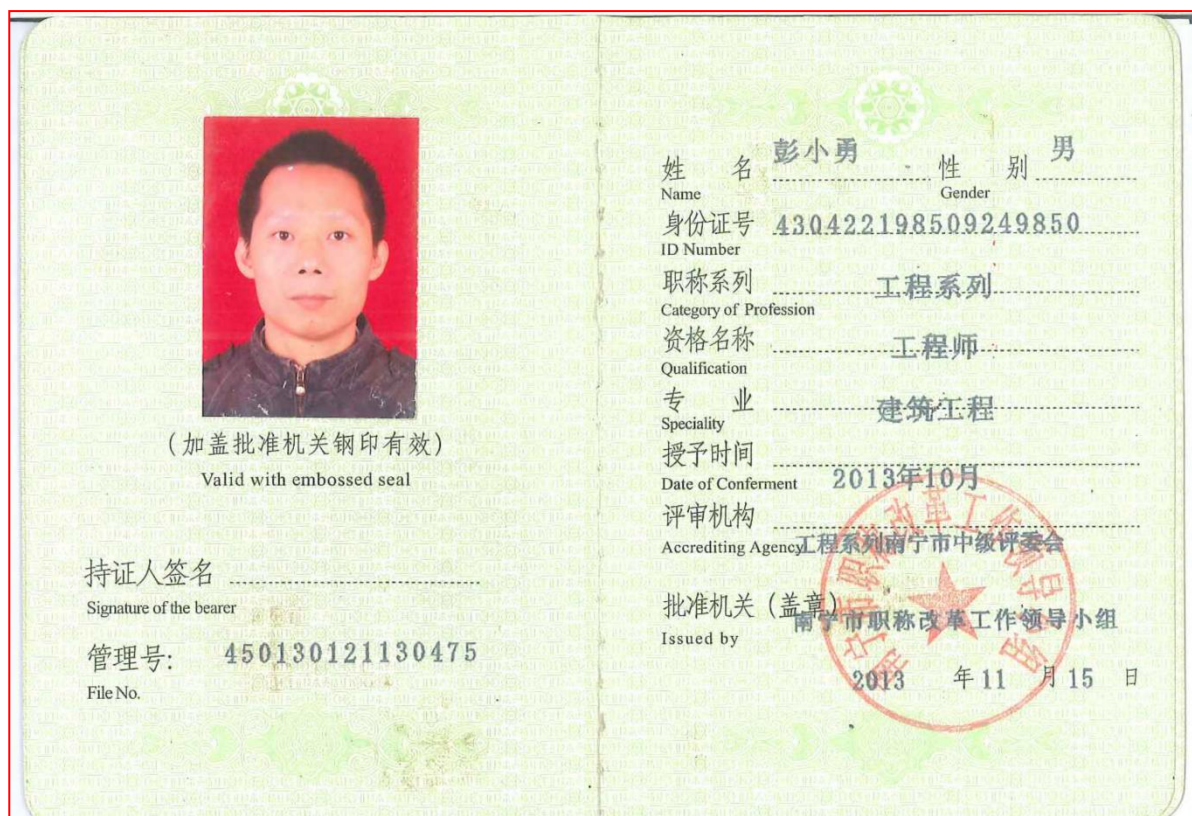 (加盖批准机关钢印有效)
Valid with embossed seal
持证人签名
Signature of the bearer
管理号: 450130121130475
File No.
姓 名 彭小勇 性 别 男
Name Gender
身份证号 430422198509249850
ID Number
职称系列 工程系列
Category of Profession
资格名称 工程师
Qualification
专 业 建筑工程
Speciality
授予时间
Date of Conferment 2013年10月
评审机构
Accrediting Agency 工程系列南宁市中级评委会
批准机关(盖章)
Issued by 南宁市职称改革工作领导小组
2013 年 11 月 15 日
南宁市职称改革工作领导小组